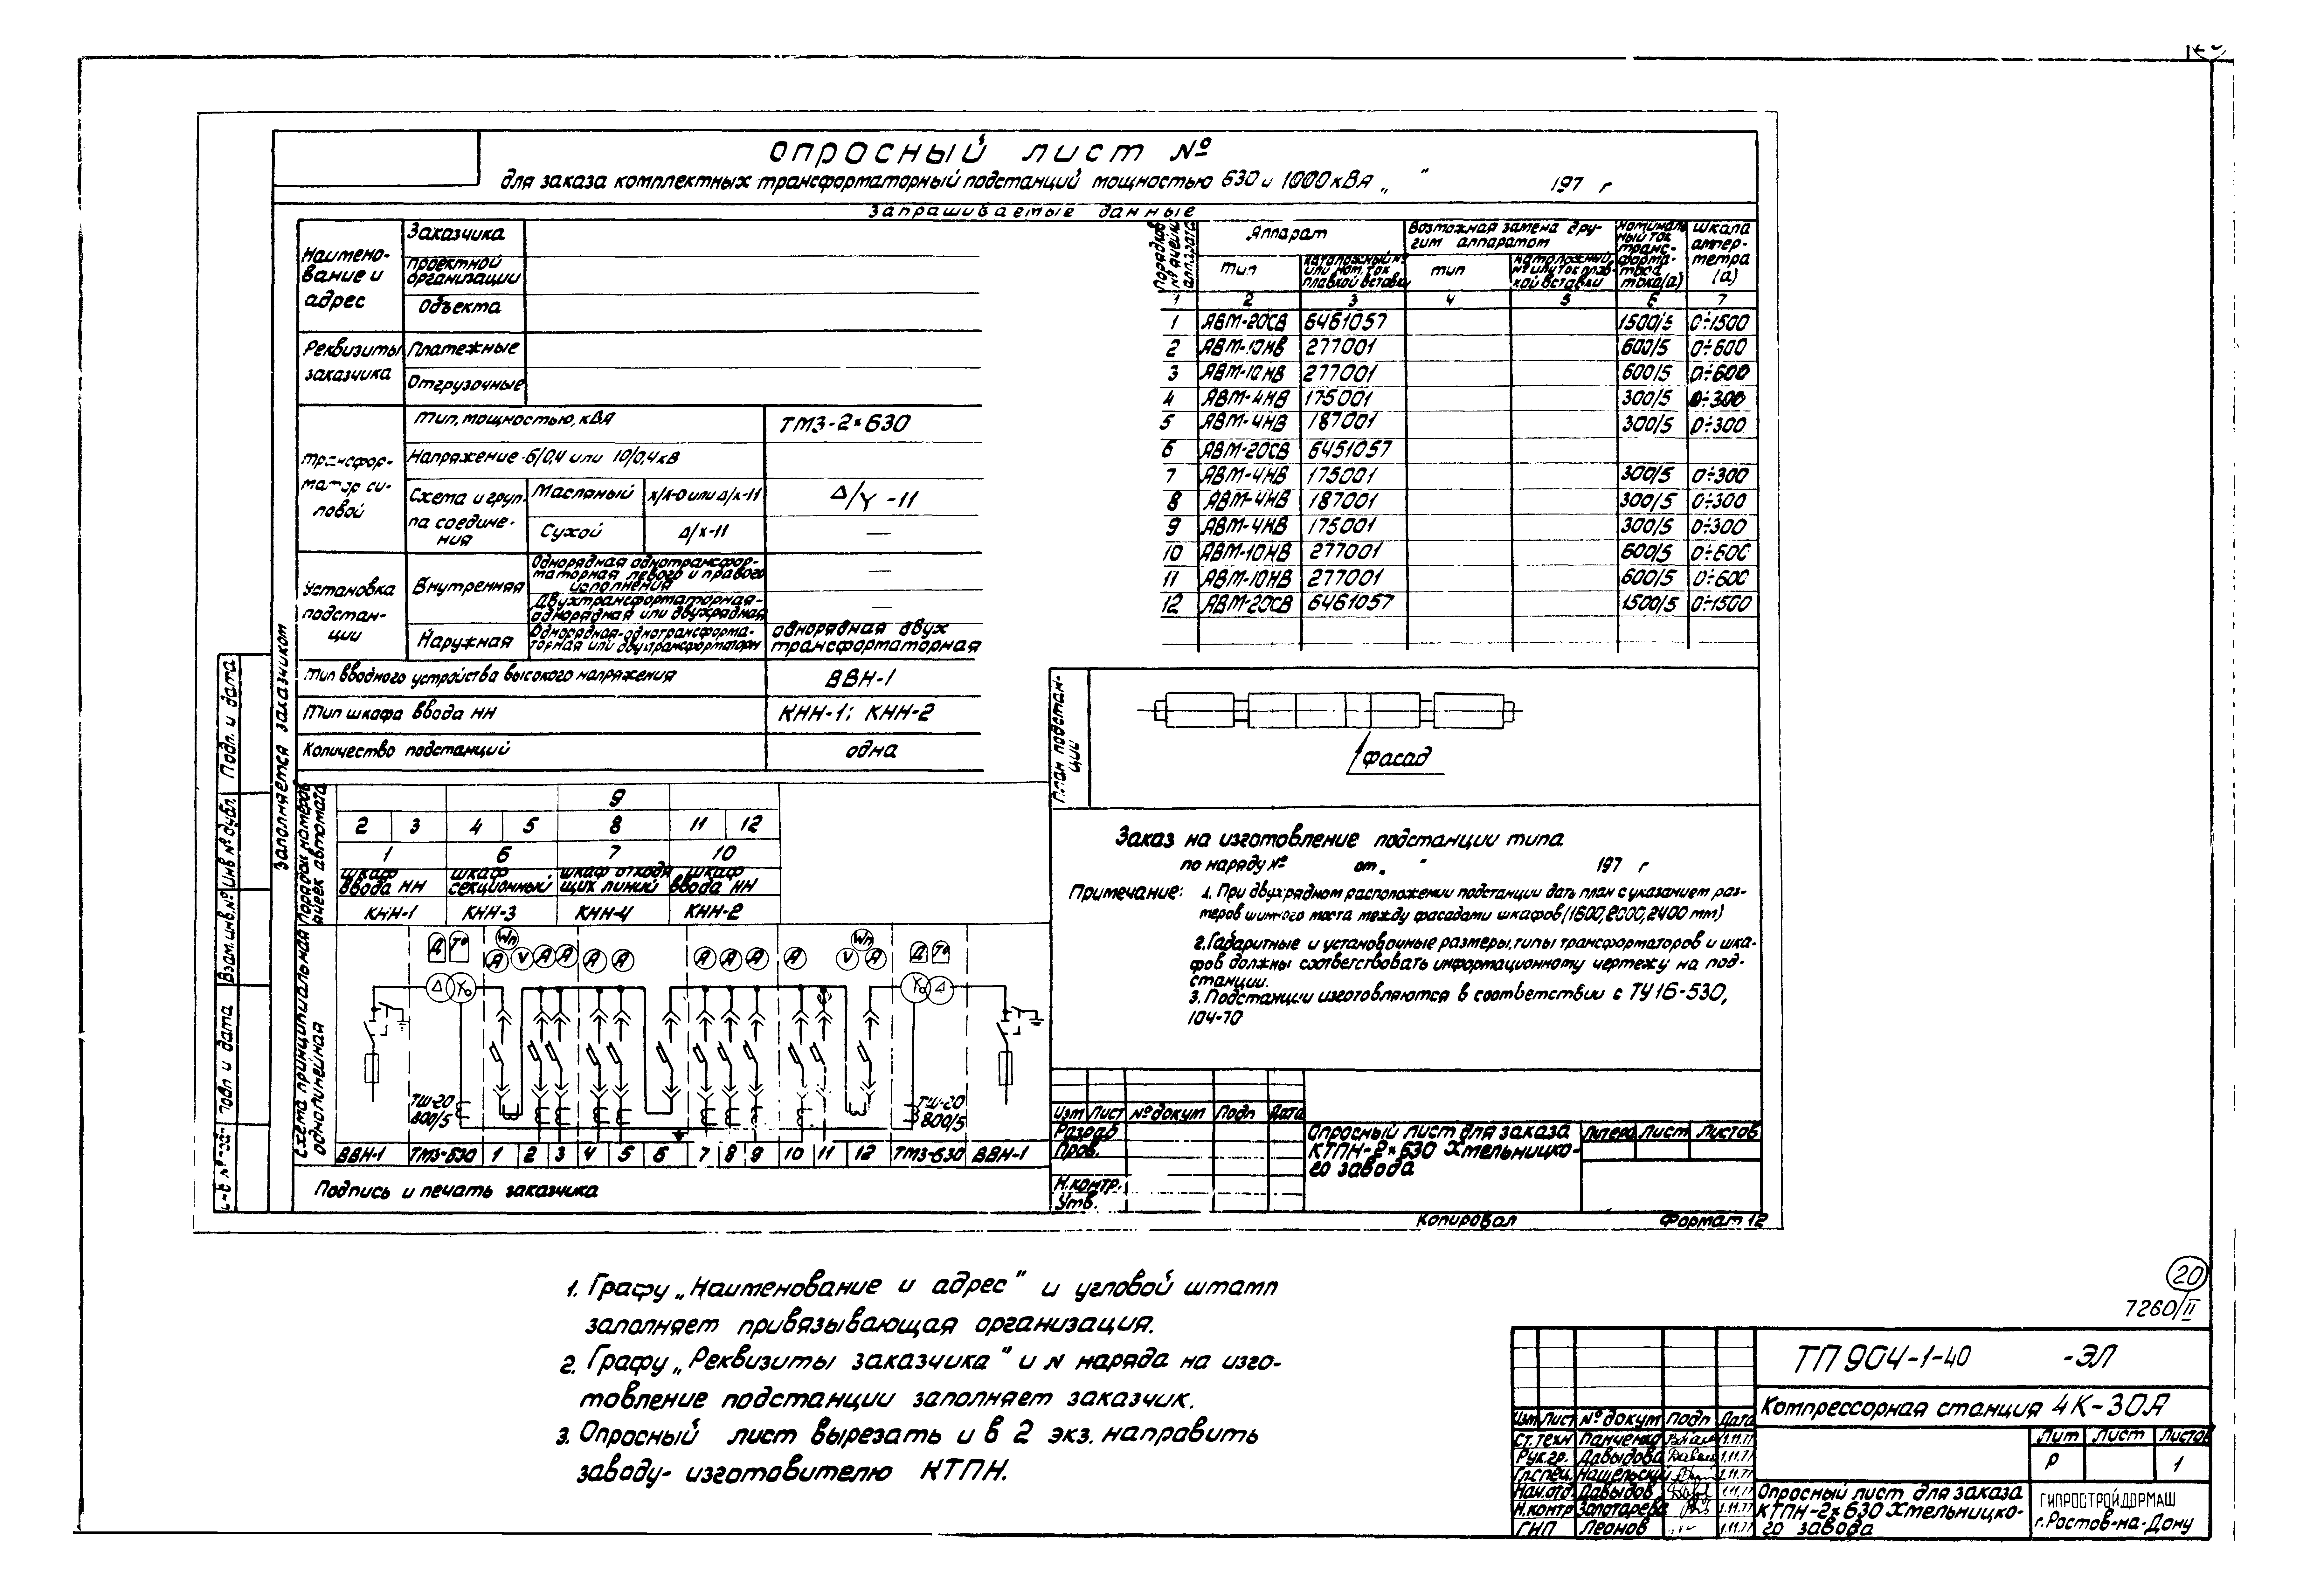 Опросный лист №
для заказа комплектных трансформаторный подстанций мощностью 630 и 1000 кВА „ " 197 г
Запрашиваемые данные
Наимено-
вание и
адрес
Заказчика
Проектной
организации
Объекта
Реквизиты
заказчика
Платежные
Отгрузочные
Трансфор-
матор си-
ловой
Тип, мощностью, кВА
ТМЗ-2×630
Напряжение -6/0,4 или 10/0,4 кв
Схема и груп-
па соедине-
ния
Масляный
Сухой
Δ/Y -11
—
Установка
подстан-
ции
Внутренняя
Однорядная однотрансфор-
маторная левого и правого
исполнения
—
Двухтрансформаторная-
однорядная или двухрядная
—
Наружная
Однорядная-однотрансформа-
торная или двухтрансформаторн
однорядная двух
трансформаторная
Тип вводного устройства высокого напряжения
ВВН-1
Тип шкафа ввода НН
КНН-1; КНН-2
Количество подстанций
одна
Заполняется заказчиком
Порядков
№ ячейки
аппарата
Аппарат
Возможная замена дру-
гим аппаратом
Номиналь
ный ток
транс-
форма-
тора
тока(а)
Шкала
ампер-
метра
(а)
Тип
каталожный №
или ном. ток
плавкой вставки
тип
каталожный
№ или ток плав-
кой вставки
1 2 3 4 5 6 7
1 АВМ-20СВ 6461057 1500/5 0÷1500
2 АВМ-10НВ 277001 600/5 0÷600
3 АВМ-10НВ 277001 600/5 0÷600
4 АВМ-4НВ 175001 300/5 0÷300
5 АВМ-4НВ 187001 300/5 0÷300
6 АВМ-20СВ 6451057
7 АВМ-4НВ 175001 300/5 0÷300
8 АВМ-4НВ 187001 300/5 0÷300
9 АВМ-4НВ 175001 300/5 0÷300
10 АВМ-10НВ 277001 600/5 0÷600
11 АВМ-10НВ 277001 600/5 0÷600
12 АВМ-20СВ 6461057 1500/5 0÷1500
План подстан-
ции
Фасад
Порядок номеров
ячеек автомата
9
2 3 4 5 8 11 12
1 6 7 10
шкаф
ввода НН
шкаф
секционный
шкаф отходя
щих линий
шкаф
ввода НН
КНН-1 КНН-3 КНН-4 КНН-2
Схема принципиальная
однолинейная
Д Т° Wh Wh Д Т°
А V А А А А А А А А V А
Δ Y₀ Y₀ Δ
ТШ-20
800/5
ТШ-20
800/5
ВВН-1 ТМЗ-630 1 2 3 4 5 6 7 8 9 10 11 12 ТМЗ-630 ВВН-1
Подпись и печать заказчика
Заказ на изготовление подстанции типа
по наряду № от „ " 197 г
Примечание: 1. При двухрядном расположении подстанции дать план с указанием раз-
меров шинного моста между фасадами шкафов (1600, 2000, 2400 мм)
2. Габаритные и установочные размеры, типы трансформаторов и шка-
фов должны соответствовать информационному чертежу на под-
станции.
3. Подстанции изготовляются в соответствии с ТУ 16-530,
104-70
Изм Лист № докум Подп Дата
Разраб
Пров.
Н.контр.
Утв.
Опросный лист для заказа
КТПН-2×630 Хмельницко-
го завода
Литера Лист Листов
Копировал Формат 12
Подп. и дата
Инв № дубл.
Взам. инв. №
Подп и дата
1. Графу „Наименование и адрес" и угловой штамп
заполняет привязывающая организация.
2. Графу „Реквизиты заказчика" и N наряда на изго-
товление подстанции заполняет заказчик.
3. Опросный лист вырезать и в 2 экз. направить
заводу- изготовителю КТПН.
20
7260/II
ТП 904-1-40 -ЭЛ
Компрессорная станция 4К-30А
Изм Лист № докум Подп Дата
Ст.техн Панченко 1.11.77
Рук.гр. Давыдова 1.11.77
Гл.спец. Нашельский 1.11.77
Нач.отд. Давыдов 1.11.77
Н.контр Золотарева 1.11.77
ГИП Леонов 1.11.77
Лит Лист Листов
Р 1
Опросный лист для заказа
КТПН-2×630 Хмельницко-
го завода
ГИПРОСТРОЙДОРМАШ
г. Ростов-на-Дону